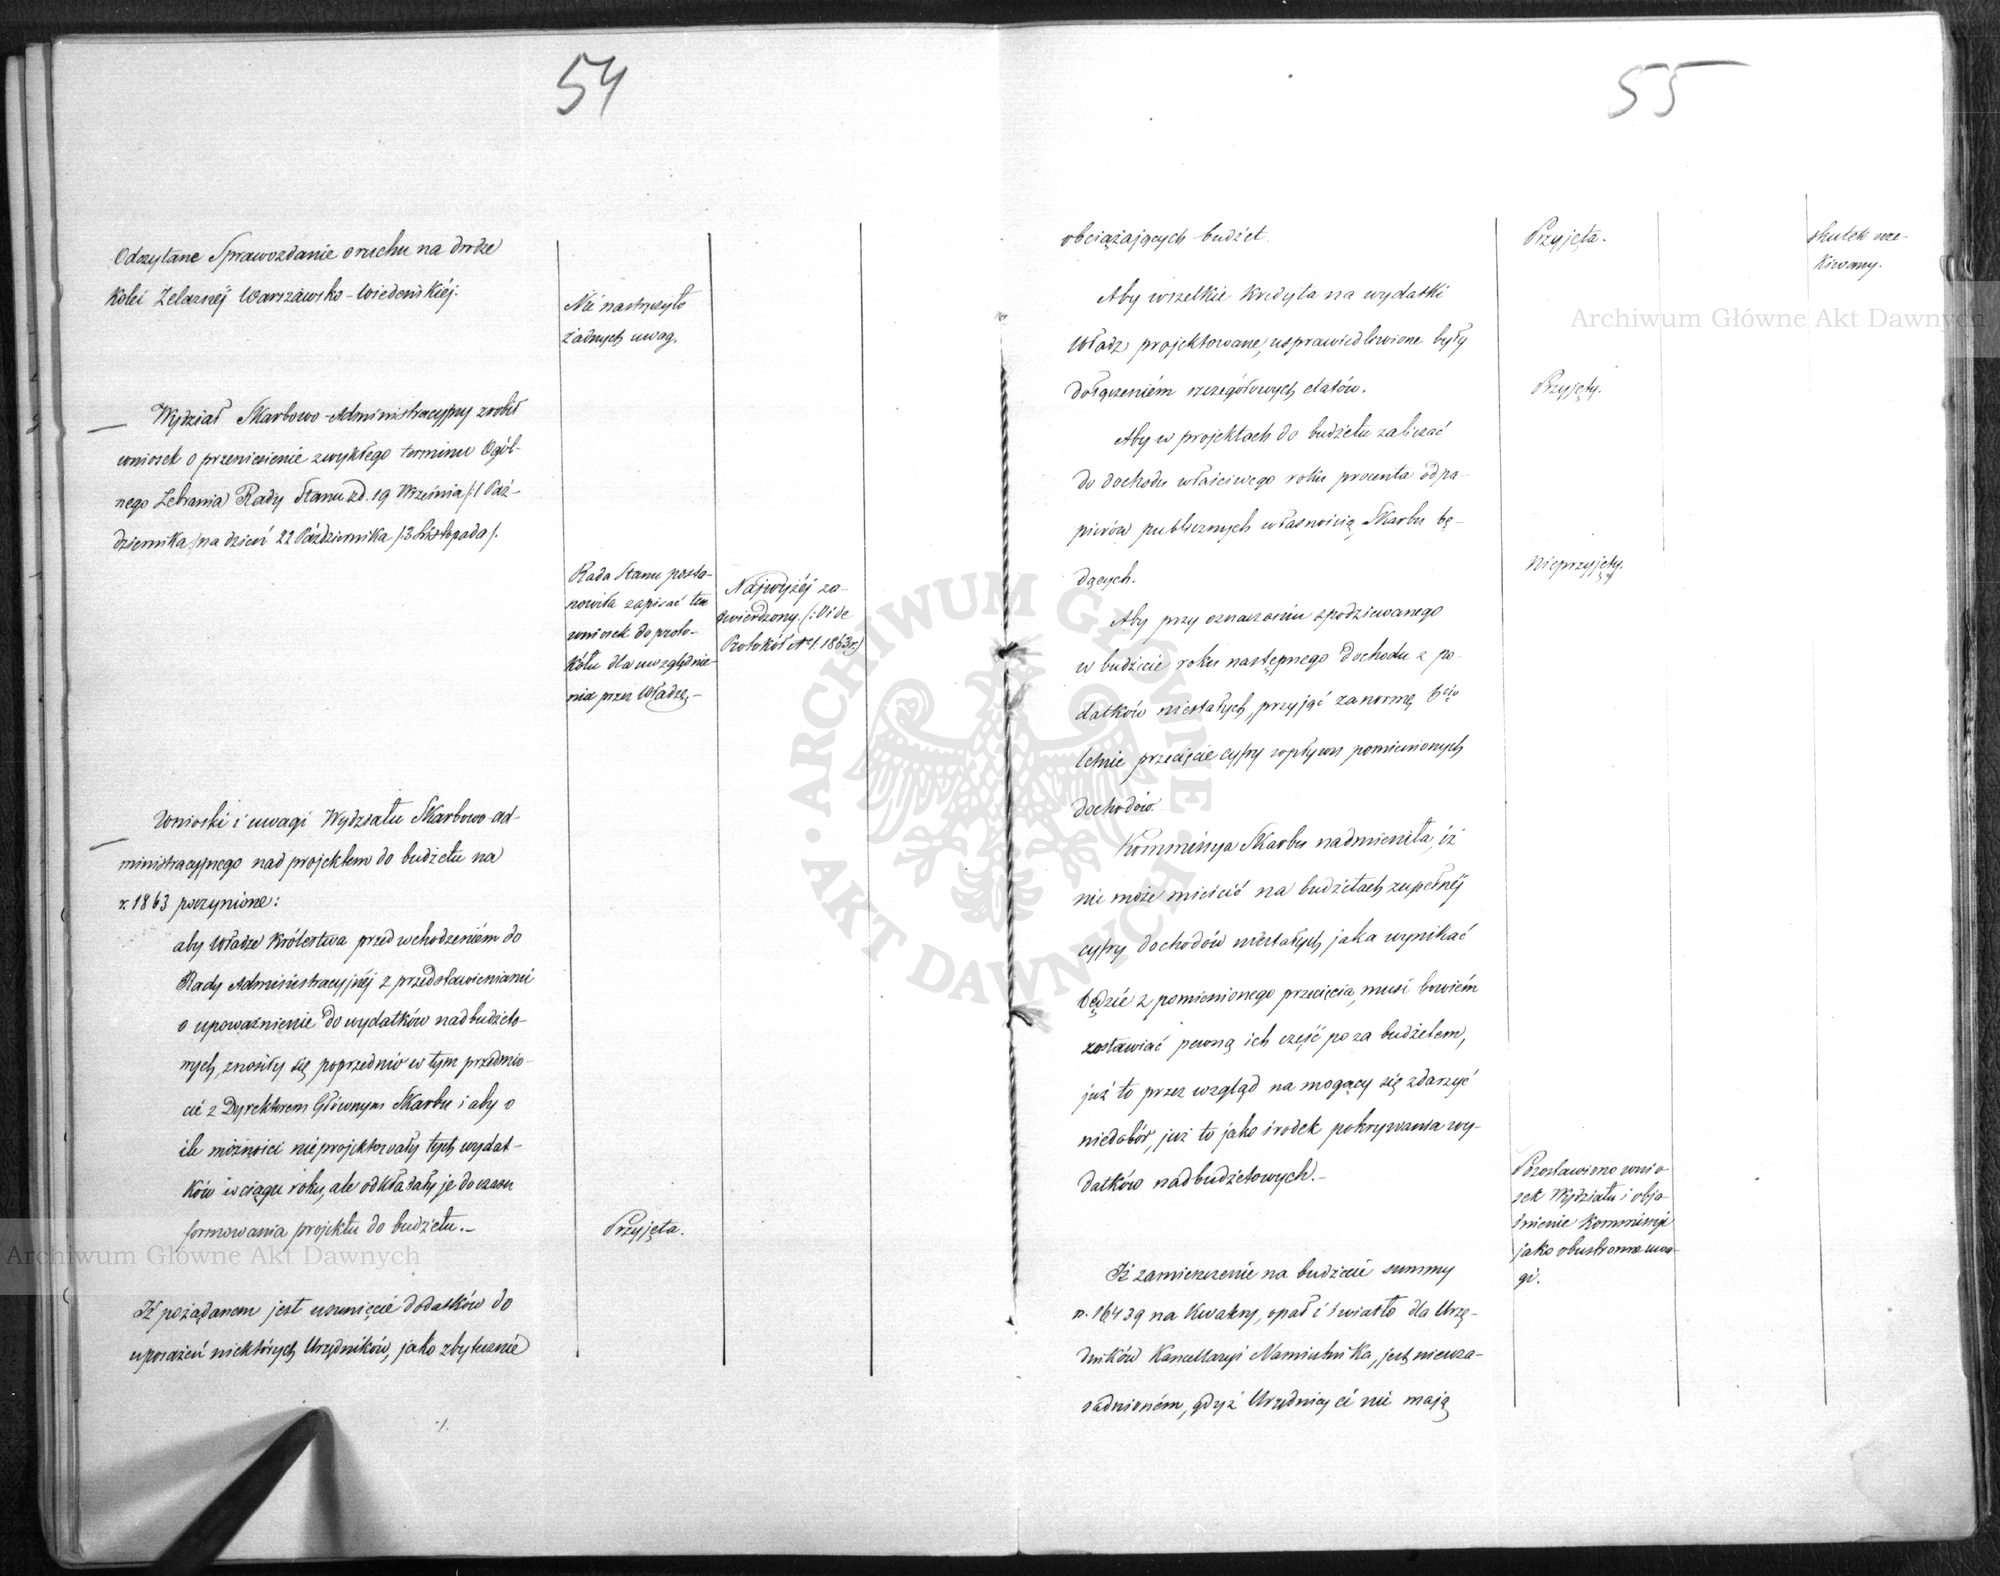 54
Odczytane Sprawozdanie o ruchu na drodze
Kolei Żelaznéj Warszawsko-Wiedeńskiéj.
Nie nastręczyło
żadnych uwag.
Wydział Skarbowo-Administracyjny zrobił
wniosek o przeniesienie zwykłego terminu Ogól-
nego Zebrania Rady Stanu z d. 19 Września /: 1 Paź-
dziernika / na dzień 22 Października /: 3 Listopada /.
Rada Stanu posta-
nowiła zapisać ten
wniosek do proto-
kółu dla uwzględnie-
nia przez Władzę.-
Najwyżéj za-
twierdzony. (: Vide
Protokół No 1. 1863 r.)
Wnioski i uwagi Wydziału Skarbowo-ad-
ministracyjnego nad projektem do budżetu na
r. 1863 poczynione:
aby Władze Królestwa przed wchodzeniém do
Rady Administracyjnéj z przedstawieniami
o upoważnienie do wydatków nadbudżeto-
wych, znosiły się poprzednio w tym przedmio-
cie z Dyrektorem Głównym Skarbu i aby o
ile możności nieprojektowały tych wydat-
ków w ciągu roku, ale odkładały je do czasu
formowania projektu do budżetu.-
Przyjęta.
Iż pożądanem jest usunięcie dodatków do
uposażeń niektórych Urzędników, jako zbytecznie
./.
55
obciążających budżet.
Przyjęta.
skutek ocze-
kiwany.
Aby wszelkie kredyta na wydatki
Władz projektowane, usprawiedliwione były
dołączeniém szczegółowych etatów.
Przyjęty.
Aby w projektach do budżetu zaliczać
do dochodu właściwego roku procenta od pa-
pierów publicznych własnością Skarbu bę-
dących.
Nieprzyjęty.
Aby przy oznaczeniu spodziewanego
w budżecie roku następnego dochodu z po-
datków niestałych, przyjąć za normę 6cio
letnie przecięcie cyfry wpływu pomienionych
dochodów.
Kommissya Skarbu nadmieniła, iż
nie może mieścić na budżetach zupełnéj
cyfry dochodów niestałych, jaka wynikać
będzie z pomienionego przecięcia, musi bowiém
zostawiać pewną ich część po za budżetem,
już to przez wzgląd na mogący się zdarzyć
niedobór, już to jako środek pokrywania wy-
datków nadbudżetowych.-
Pozostawiono wnio-
sek Wydziału i obja-
śnienie Kommissyi
jako obustronne uwa-
gi.
Iż zamieszczenie na budżecie summy
rs. 16439 na kwatery, opał i światło dla Urzę-
dników Kancellaryi Namiestnika, jest nieuza-
sadnioném, gdyż Urzędnicy ci nie mają
Archiwum Główne Akt Dawnych
Archiwum Główne Akt Dawnych
ARCHIWUM GŁÓWNE AKT DAWNYCH